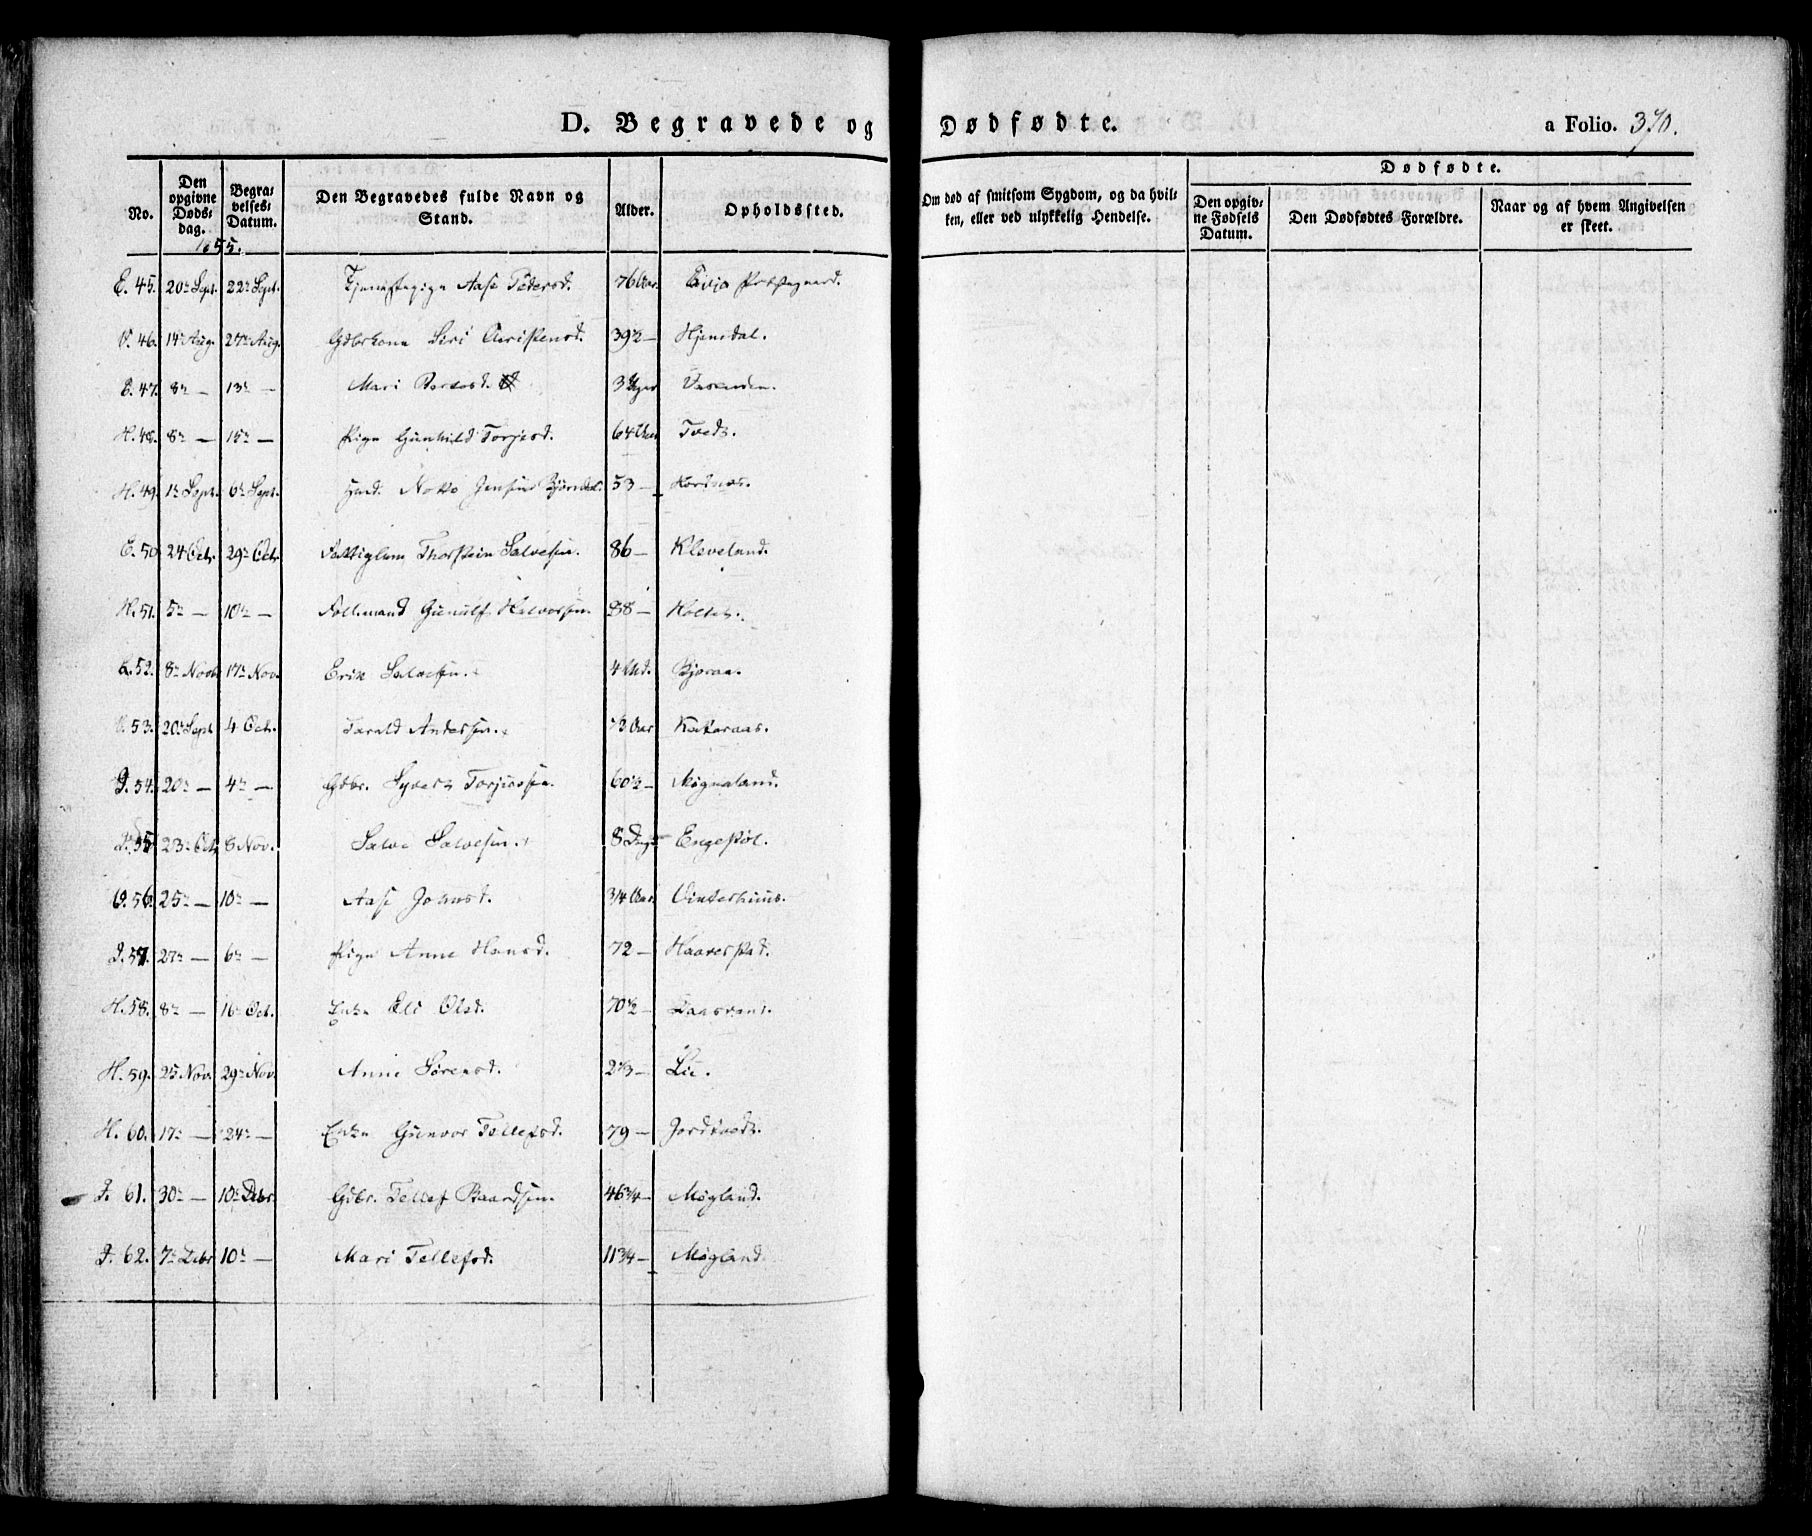 D. Begravede og Dødfødte. a Folio. 370.
No. Den opgivne Døds-dag. Begra-velses-Datum. Den Begravedes fulde Navn og Stand. Alder. Opholdssted. Om død af smitsom Sygdom, og da hvil-ken, eller ved ulykkelig Hendelse. Dødfødte. Den opgiv-ne Fødsels Datum. Den Dødfødtes Forældre. Naar og af hvem Angivelsen er skeet.
1855.
E. 45. 20de Sept. 22de Sept. Tjenestepige Aase Pedersd. 76 Aar Evje Præstegaard.
46. 14de Aug. 27de Aug. Gdbrkone Siri Christensd. 39½ — Hjemdal.
E. 47. 8de — 13de — Mari 3 Uger
H. 48. 8de — 15de — Pige Gunhild Torjusd. 64 Aar Tvedt.
H. 49. 1ste Sept. 6te Sept. Jensen 53 —
E. 50 24 Oct. 29de Oct. Fattiglem Thorstein Salvesen. 86 — Kleveland.
H. 51. 5te — 10de — Follmand Gunulf Halvorsen. 88 — Holtet.
E. 52. 8de Novb. 17de Nov. Erik Salvesen. 4 Md. Bjoraa.
53. 20de Sept 4 Oct. Tarald Andersen. 73 Aar Kateraas.
I. 54. 20de — 4de — Gdbr. Syvert Torjussen. 60½ — Møgnaland.
55 23de Oct. 8 Nov. Salve Salvesen. 8 Dage Engestøl.
56. 25de — 10de — Aase Johnsd. 3/4 Aar Vinterhuus.
I. 57. 27de — 6te — Pige Anne Hansd. 72 — Haavestad.
H. 58. 8de — 16de Oct. Enke Eli Olsd. 70½ —
H. 59. 25 Nov. 29de Nov. Anne Sørensd. 2⅓ — Lie.
H. 60. 17de — 24de — Enke Gunvor Tellefsd. 79 — Jordtvedt.
I. 61. 30te — 10de Debr. Gdbr. Tellef Baardsen. 46¾ — Møgland.
I. 62. 7de Debr 10de — Mari Tellefsd. 11¾ — Møgland.